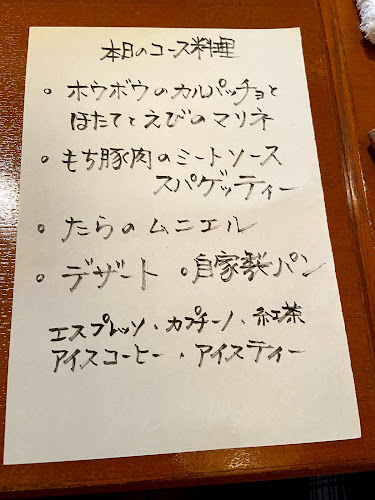 本日のコース料理
• ホウボウのカルパッチョと
ほたてとえびのマリネ
• もち豚肉のミートソース
スパゲッティー
• たらのムニエル
• デザート • 自家製パン
エスプレッソ・カプチーノ・紅茶
アイスコーヒー・アイスティー